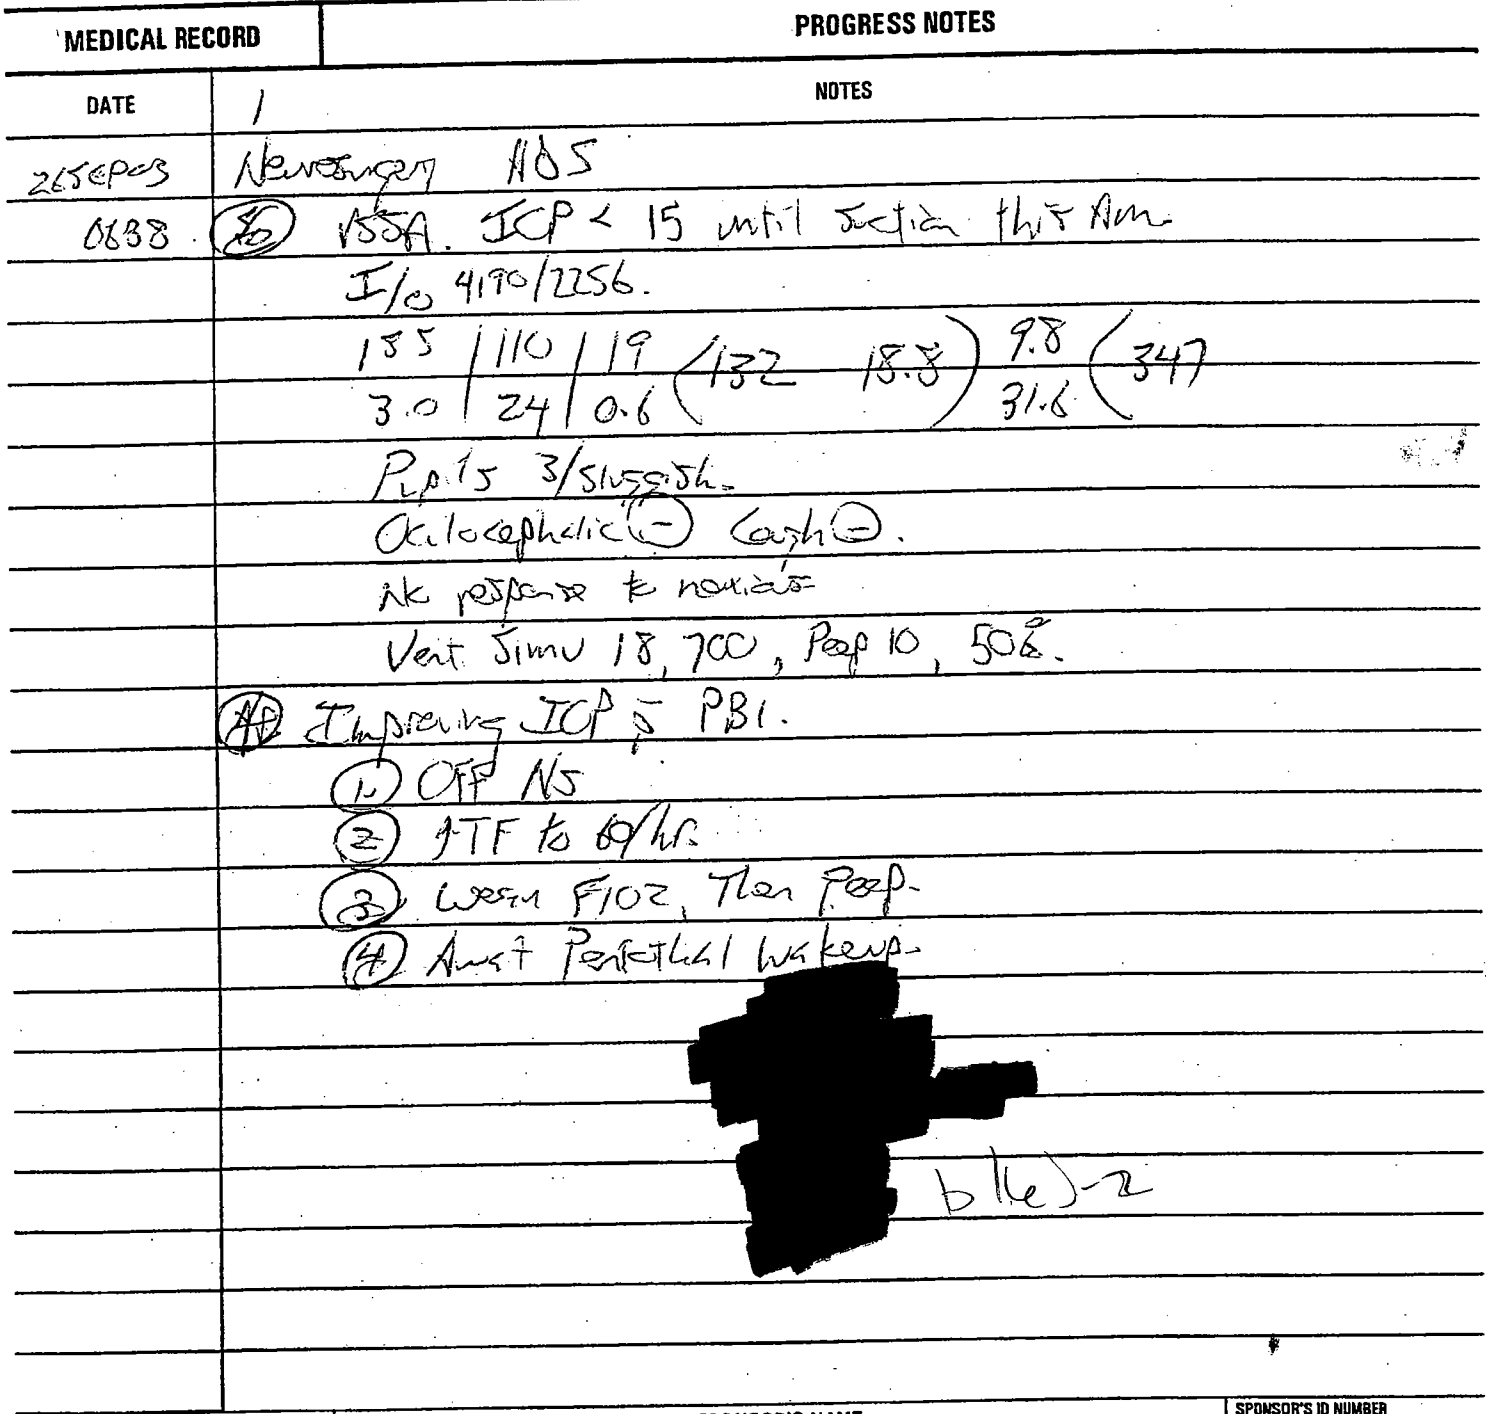 MEDICAL RECORD
PROGRESS NOTES
DATE
NOTES
26SEP03 Neurosurgery
0638 VSSA. ICP < 15 until suction this Am.
I/O 4190/2256.
110 / 19 (132 18.8) 9.8 (347
3.0 / 24 / 0.6 31.6
Pupils 3/sluggish.
Oculocephalic (-) Cough (-).
No response to noxious
Vent Simv 18, 700, Peep 10, 50%.
A/P Improving ICP PBI.
1. Off NS
2 ↑TF to 60/hr.
3 Wean FiO2, Then Peep.
4 Await Pentothal wakeup.
b(6)-2
SPONSOR'S ID NUMBER